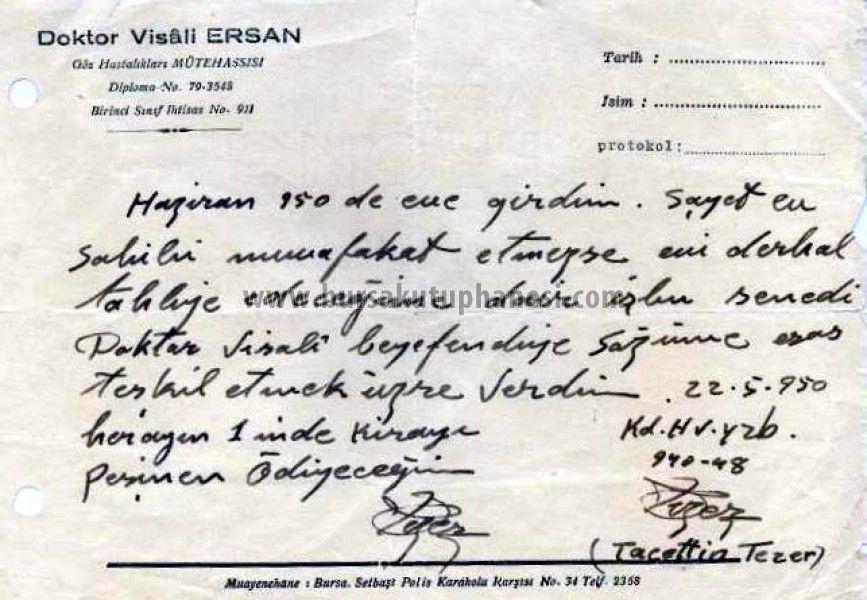 Doktor Visâli ERSAN
Göz Hastalıkları MÜTEHASSISI
Diploma No. 79-3548
Birinci Sınıf İhtisas No. 911
Tarih :
İsim :
protokol:
Haziran 950 de eve girdim. Şayet ev
sahibi muvafakat etmezse evi derhal
tahliye edeceğime dair işbu senedi
Doktor Visali beyefendiye sözüme esas
teşkil etmek üzre verdim. 22.5.950
her ayın 1 inde kirayı
peşinen ödiyeceğim
Kd. Hv. yzb.
940-48
Tezer
Tezer
(Tacettin Tezer)
www.bursakutuphanesi.com
Muayenehane : Bursa. Setbaşı Polis Karakolu Karşısı No. 34 Telf. 2368